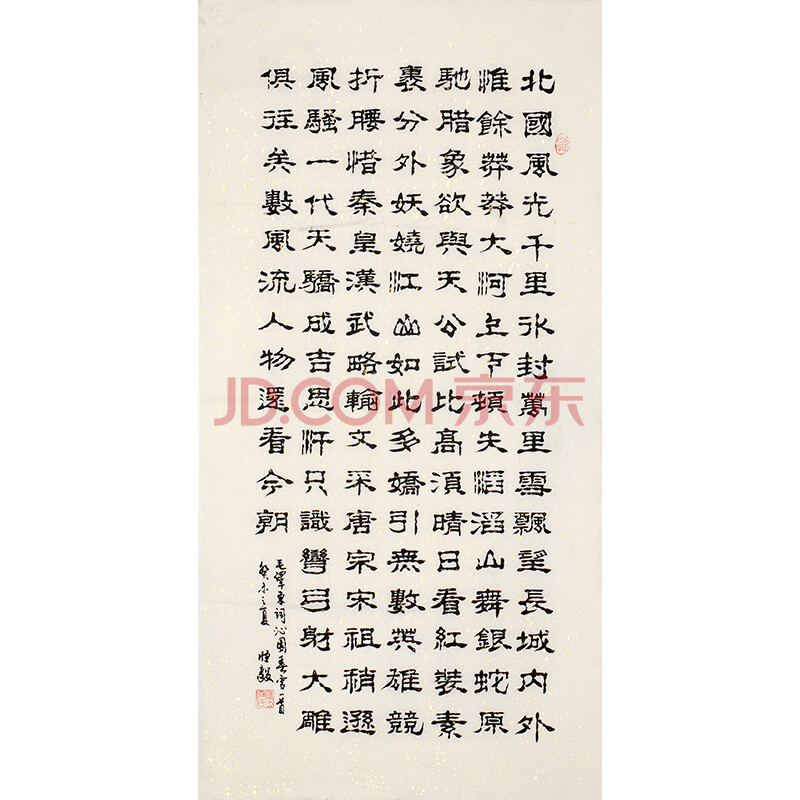 北國風光千里冰封萬里雪飄望長城内外
惟餘莽莽大河上下頓失滔滔山舞銀蛇原
馳腊象欲與天公試比高湏晴日看紅裝素
裹分外妖嬈江山如此多嬌引無數英雄競
折腰惜秦皇漢武略輸文采唐宗宋祖稍遜
風騷一代天驕成吉思汗只識彎弓射大雕
俱往矣數風流人物還看今朝
毛澤東詞沁園春雪一首
癸未之夏
JD.COM 京东